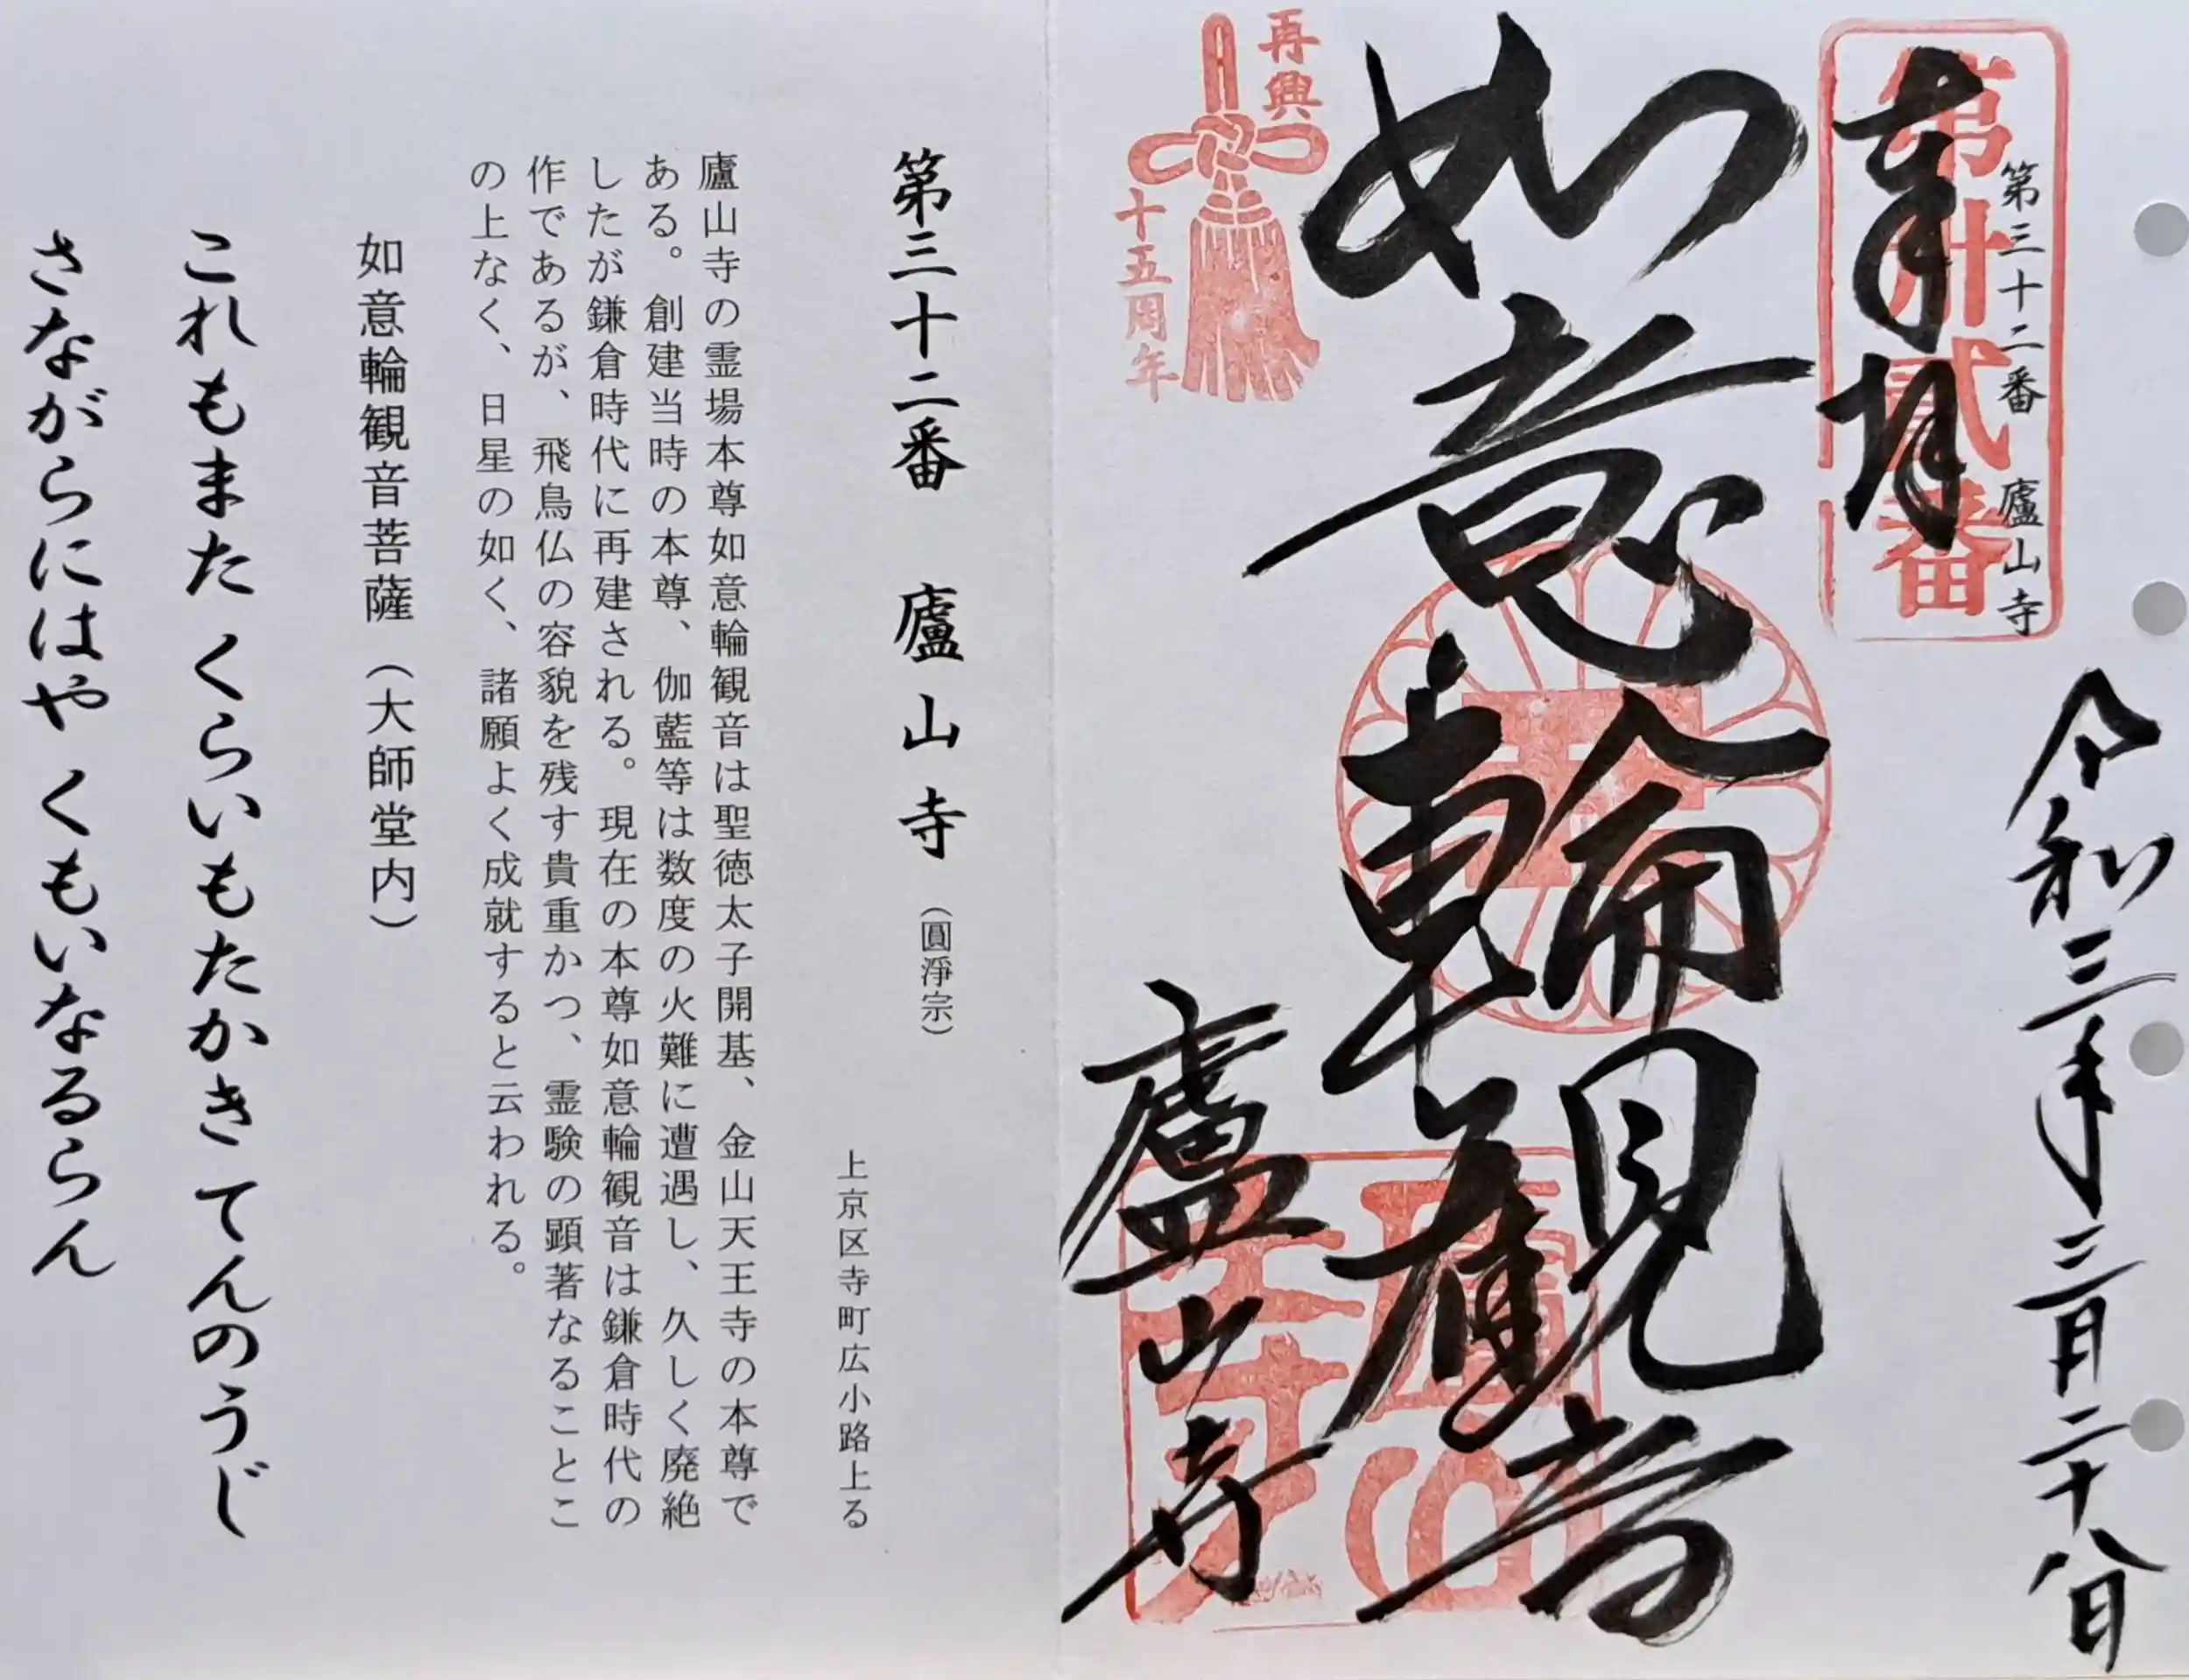 奉拝
第三十二番 廬山寺
第卅貳番
令和三年三月二十八日
如意輪観音
廬山寺
再興
十五周年
第三十二番 廬山寺(圓淨宗)
上京区寺町広小路上る
廬山寺の霊場本尊如意輪観音は聖徳太子開基、金山天王寺の本尊で
ある。創建当時の本尊、伽藍等は数度の火難に遭遇し、久しく廃絶
したが鎌倉時代に再建される。現在の本尊如意輪観音は鎌倉時代の
作であるが、飛鳥仏の容貌を残す貴重かつ、霊験の顕著なることこ
の上なく、日星の如く、諸願よく成就すると云われる。
如意輪観音菩薩(大師堂内)
これもまた くらいもたかき てんのうじ
さながらにはや くもいなるらん